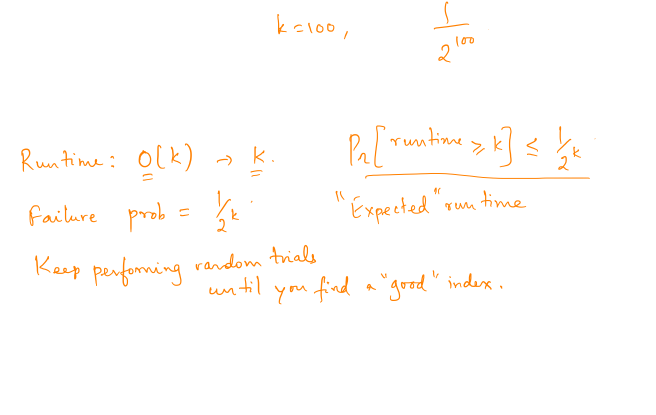 k=100, 1/2^100
Runtime: O(k) → k. Pr[runtime ≥ k] ≤ 1/2^k
Failure prob = 1/2^k. "Expected" run time
Keep performing random trials
until you find a "good" index.